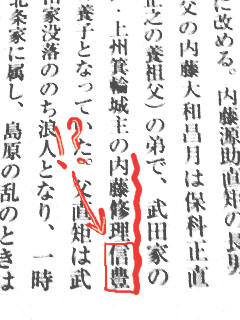 に改める。内藤源助直矩の長男
父の内藤大和昌月は保科正直
正之の養祖父）の弟で、武田家の
・上州箕輪城主の内藤修理信豊
養子となっていた。父直矩は武
家没落ののち浪人となり、一時
北条家に属し、島原の乱のときは
!?